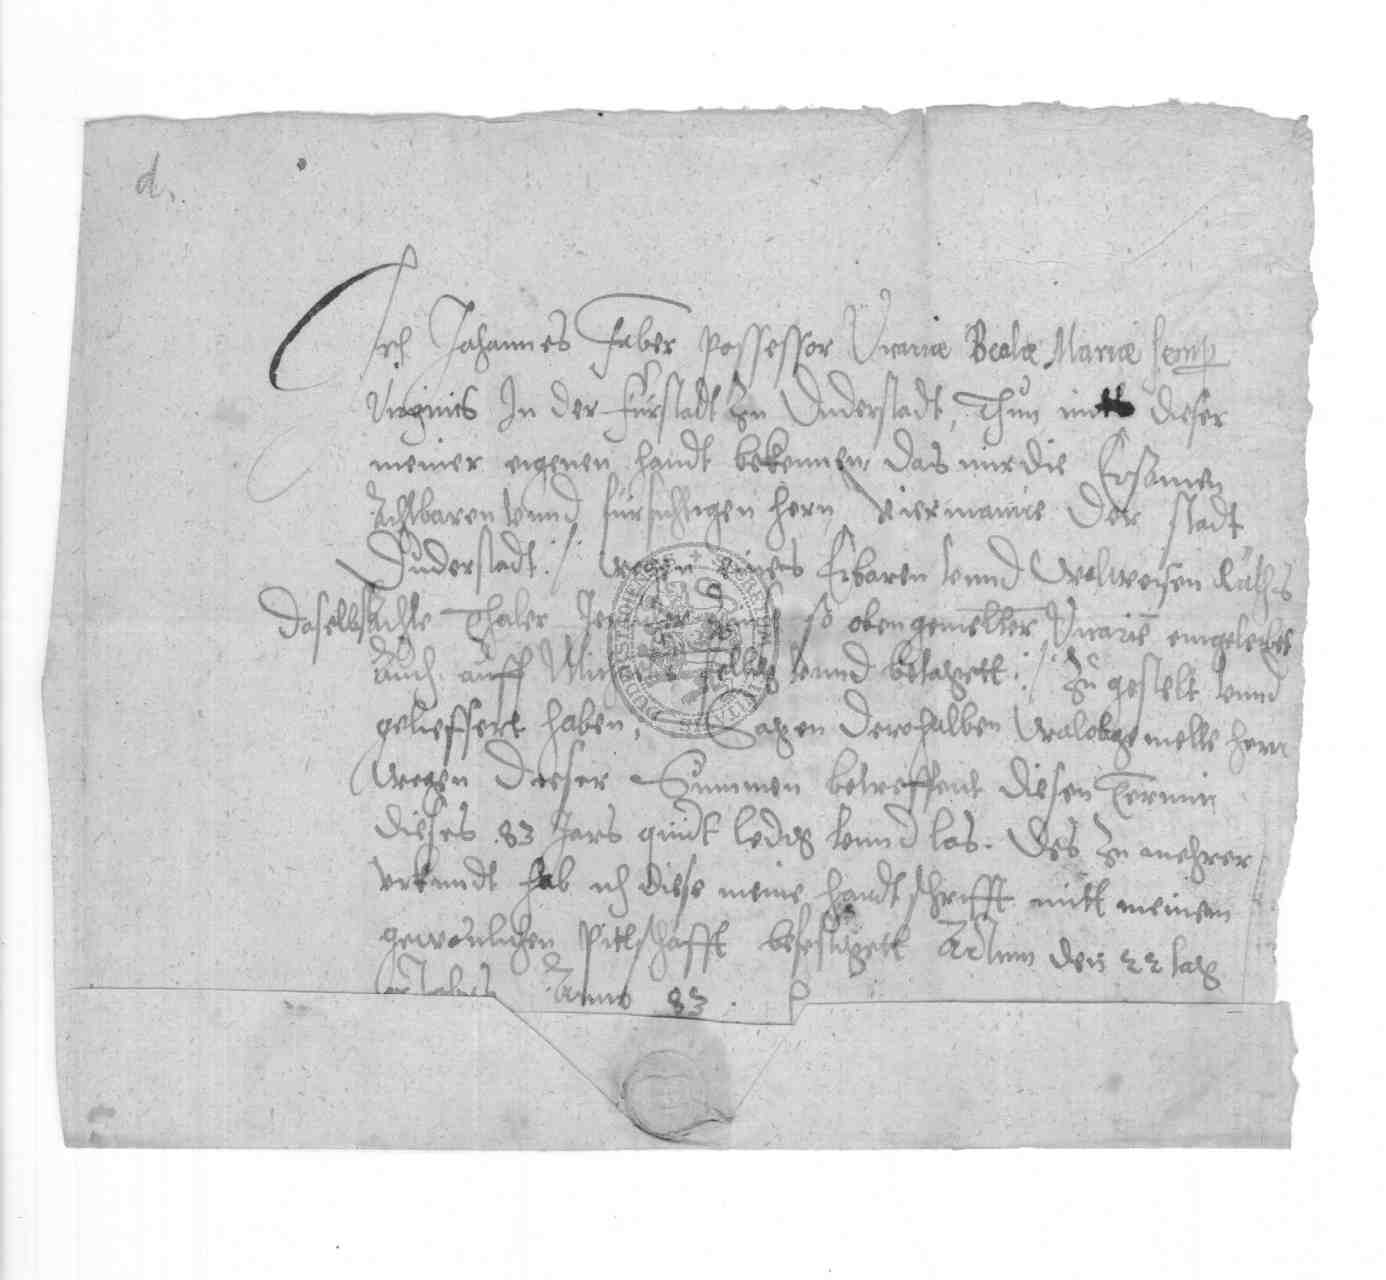 d.
Ich Johannes Faber possessor Vicariæ Beatæ Mariæ semp
virginis In der fürstadt zu Duderstadt, Thun mitt dieser
meiner eigenen handt bekennen, das mir die Ersamen
Achtbaren vnnd fürsichtigen hern Viermanne der stadt
Duderstadt :/: wegen eines Erbaren vnnd wolweysen Raths
daselbst achte Thaler so obengemelter Vicarie
auch auff vnnd betagett :/: zu gestelt vnnd
gelieffert haben, Sagen derohalben wolobgemelte hern
wegen dieser Summen betreffent diesen Termin
dieses 83 Jars quidt ledig vnnd los. Des zu mehrer
vrkundt hab ich diese meine handtschrifft mitt meinem
gewonlichen Pittschafft befestigett Actum den 22 tag
Anno 83.